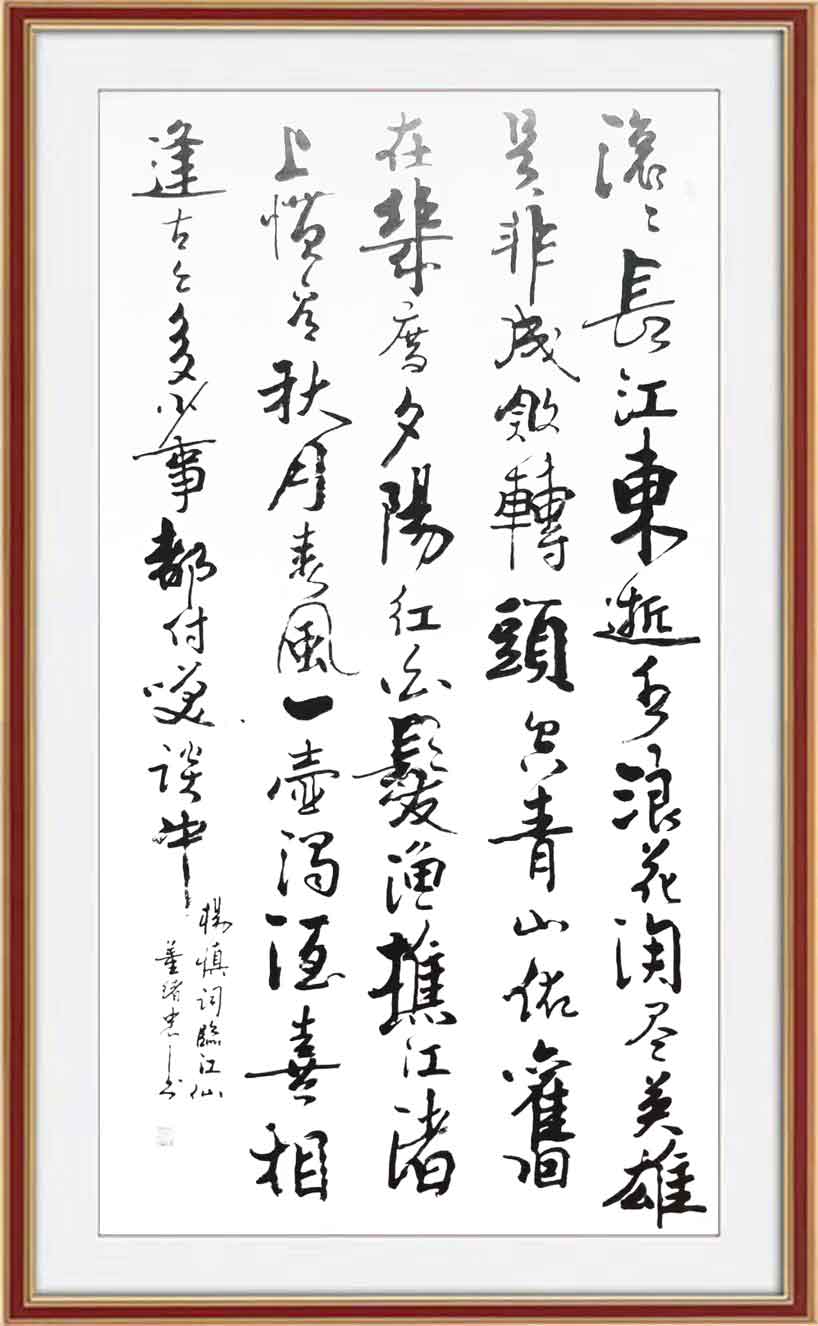 滚〻長江東逝水浪花淘尽英雄
是非成敗轉頭空青山依舊
在幾度夕陽红白髮渔樵江渚
上慣看秋月春風一壺濁酒喜相
逢古今多少事都付咲談中
楊慎词臨江仙
董忠书